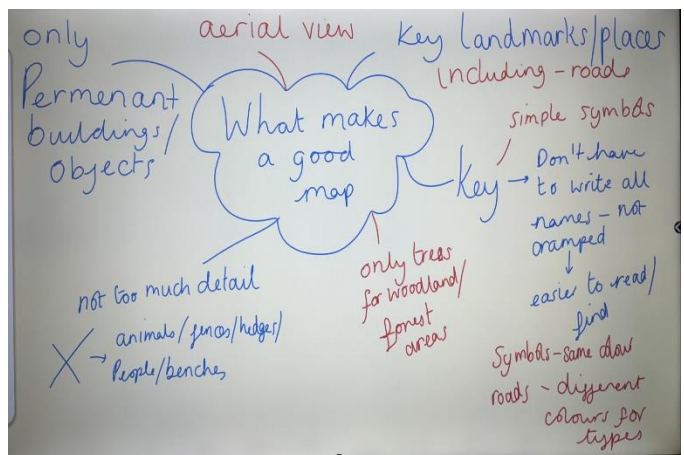 only
Permenant
buildings/
objects
aerial view
Key landmarks/places
including - roads
What makes
a good
map
simple symbols
Key → Don't have
to write all
names - not
cramped
↓
easier to read/
find
Symbols - same colour
roads - different
colours for
types
only trees
for woodland/
forest
areas
not too much detail
X → animals/fences/hedges/
People/benches